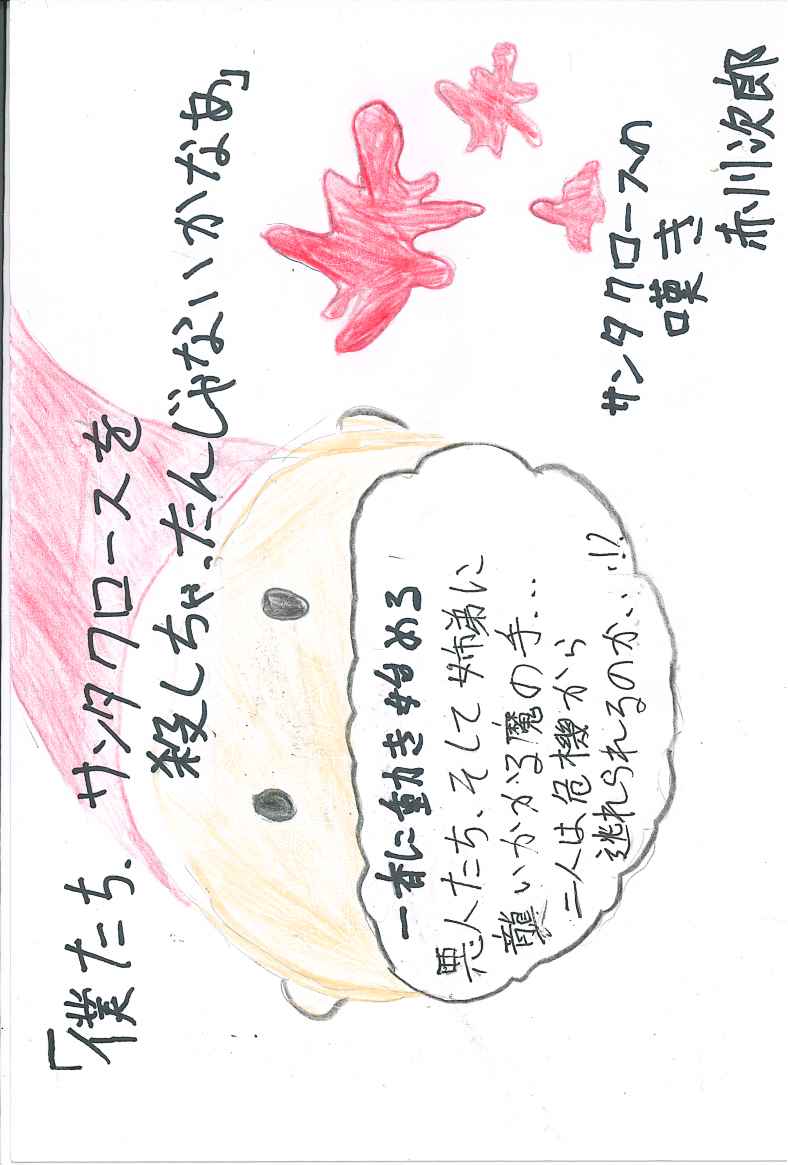 「僕たち、サンタクロースを
殺しちゃったんじゃないかなあ」
一斉に動き始める
悪人たち、そして姉弟に
襲いかかる魔の手…
二人は危機から
逃れられるのか…!?
サンタクロースの
嘆き
赤川次郎